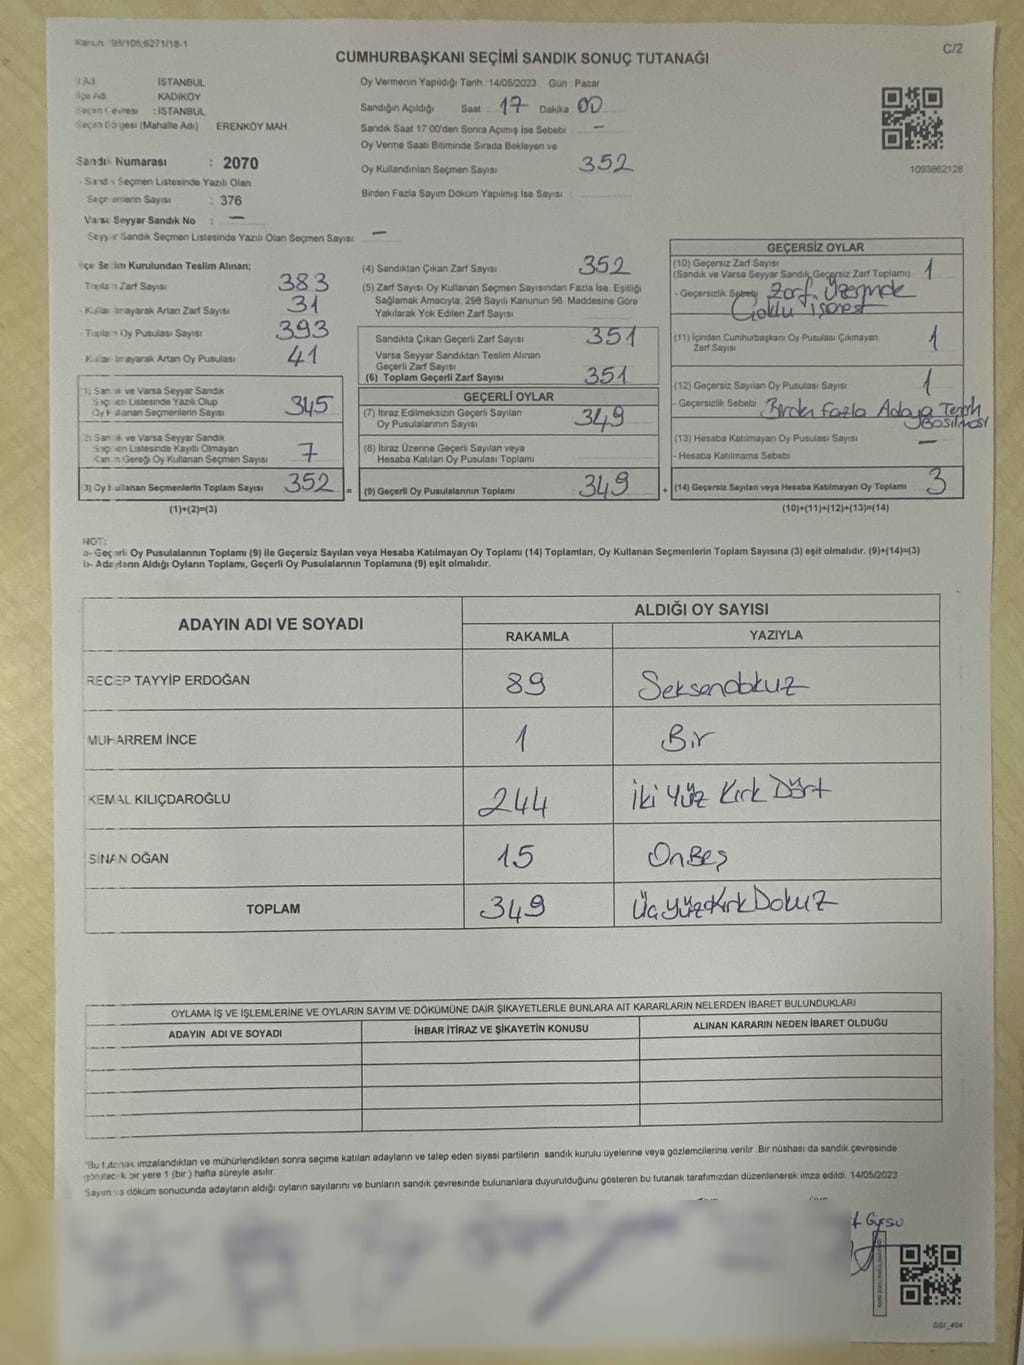 98/105,6271/18-1
C/2
CUMHURBAŞKANI SEÇİMİ SANDIK SONUÇ TUTANAĞI
İSTANBUL
KADIKÖY
: İSTANBUL
Seçim Bölgesi (Mahalle Adı) ERENKÖY MAH.
Sandık Numarası : 2070
Sandık Seçmen Listesinde Yazılı Olan
Seçmenlerin Sayısı : 376
Varsa Seyyar Sandık No : —
Seyyar Sandık Seçmen Listesinde Yazılı Olan Seçmen Sayısı: —
Oy Vermenin Yapıldığı Tarih :14/05/2023 Gün : Pazar
Sandığın Açıldığı Saat : 17 Dakika 00
Sandık Saat 17:00'den Sonra Açılmış İse Sebebi : —
Oy Verme Saati Bitiminde Sırada Bekleyen ve
Oy Kullandırılan Seçmen Sayısı : 352
Birden Fazla Sayım Döküm Yapılmış İse Sayısı :
1093862128
İlçe Seçim Kurulundan Teslim Alınan;
Toplam Zarf Sayısı 383
- Kullanılmayarak Artan Zarf Sayısı 31
- Toplam Oy Pusulası Sayısı 393
Kullanılmayarak Artan Oy Pusulası 41
1) Sandık ve Varsa Seyyar Sandık
Seçmen Listesinde Yazılı Olup
Oy Kullanan Seçmenlerin Sayısı 345
2) Sandık ve Varsa Seyyar Sandık
Seçmen Listesinde Kayıtlı Olmayan
Kanun Gereği Oy Kullanan Seçmen Sayısı 7
(3) Oy Kullanan Seçmenlerin Toplam Sayısı 352 =
(1)+(2)=(3)
(4) Sandıktan Çıkan Zarf Sayısı 352
(5) Zarf Sayısı Oy Kullanan Seçmen Sayısından Fazla İse, Eşitliği
Sağlamak Amacıyla; 298 Sayılı Kanunun 98. Maddesine Göre
Yakılarak Yok Edilen Zarf Sayısı
Sandıkta Çıkan Geçerli Zarf Sayısı 351
Varsa Seyyar Sandıktan Teslim Alınan
Geçerli Zarf Sayısı
(6) Toplam Geçerli Zarf Sayısı 351
GEÇERLİ OYLAR
(7) İtiraz Edilmeksizin Geçerli Sayılan
Oy Pusulalarının Sayısı 349
(8) İtiraz Üzerine Geçerli Sayılan veya
Hesaba Katılan Oy Pusulası Toplamı
(9) Geçerli Oy Pusulalarının Toplamı 349 +
GEÇERSİZ OYLAR
(10) Geçersiz Zarf Sayısı
(Sandık ve Varsa Seyyar Sandık Geçersiz Zarf Toplamı) 1
- Geçersizlik Sebebi Zarf Üzerinde
Çoklu İşaret
(11) İçinden Cumhurbaşkanı Oy Pusulası Çıkmayan
Zarf Sayısı 1
(12) Geçersiz Sayılan Oy Pusulası Sayısı 1
- Geçersizlik Sebebi Birden Fazla Adaya Tercih
Basılması
(13) Hesaba Katılmayan Oy Pusulası Sayısı —
- Hesaba Katılmama Sebebi
(14) Geçersiz Sayılan veya Hesaba Katılmayan Oy Toplamı 3
(10)+(11)+(12)+(13)=(14)
NOT:
a- Geçerli Oy Pusulalarının Toplamı (9) ile Geçersiz Sayılan veya Hesaba Katılmayan Oy Toplamı (14) Toplamları, Oy Kullanan Seçmenlerin Toplam Sayısına (3) eşit olmalıdır. (9)+(14)=(3)
b- Adayların Aldığı Oyların Toplamı, Geçerli Oy Pusulalarının Toplamına (9) eşit olmalıdır.
ADAYIN ADI VE SOYADI ALDIĞI OY SAYISI
RAKAMLA YAZIYLA
RECEP TAYYİP ERDOĞAN 89 Seksendokuz
MUHARREM İNCE 1 Bir
KEMAL KILIÇDAROĞLU 244 İki Yüz Kırk Dört
SİNAN OĞAN 15 OnBeş
TOPLAM 349 ÜçYüzKırkDokuz
OYLAMA İŞ VE İŞLEMLERİNE VE OYLARIN SAYIM VE DÖKÜMÜNE DAİR ŞİKAYETLERLE BUNLARA AİT KARARLARIN NELERDEN İBARET BULUNDUKLARI
ADAYIN ADI VE SOYADI İHBAR İTİRAZ VE ŞİKAYETİN KONUSU ALINAN KARARIN NEDEN İBARET OLDUĞU
*Bu tutanak imzalandıktan ve mühürlendikten sonra seçime katılan adayların ve talep eden siyasi partilerin sandık kurulu üyelerine veya gözlemcilerine verilir. Bir nüshası da sandık çevresinde
görülecek bir yere 1 (bir) hafta süreyle asılır.
Sayım ve döküm sonucunda adayların aldığı oyların sayılarını ve bunların sandık çevresinde bulunanlara duyurulduğunu gösteren bu tutanak tarafımızdan düzenlenerek imza edildi. 14/05/2023